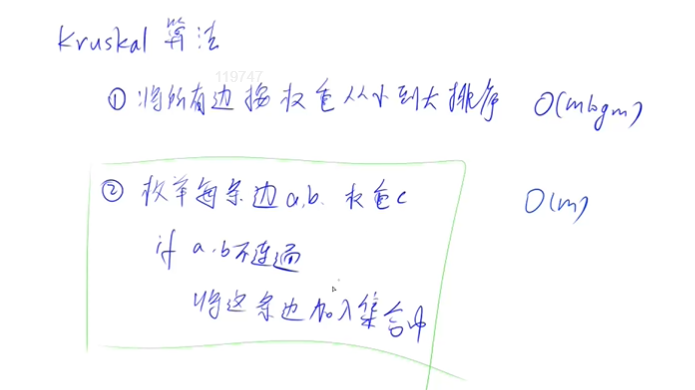 Kruskal 算法
119747
① 将所有边按权重从小到大排序 O(mlogm)
② 枚举每条边a,b 权重c O(m)
if a,b不连通
将这条边加入集合中